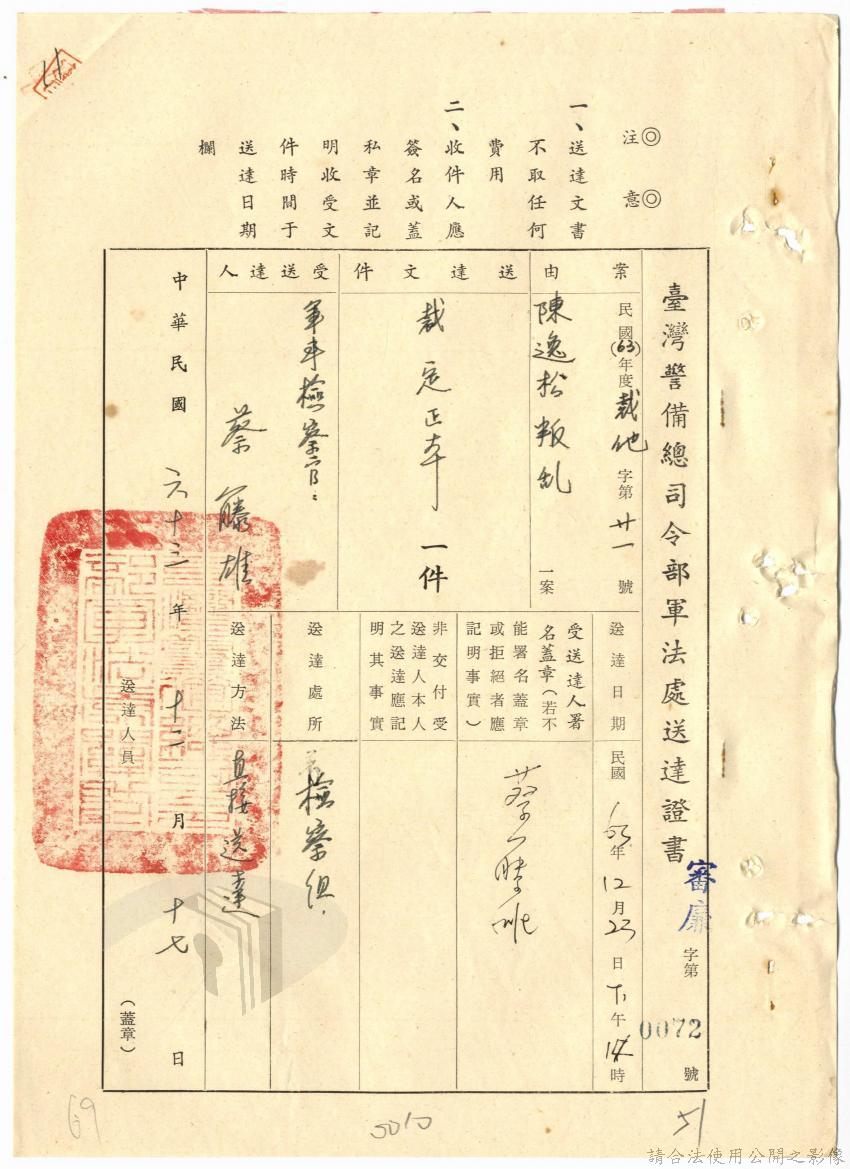 ◎注意◎
一、送達文書
不取任何
費用
二、收件人應
簽名或蓋
私章並記
明收受文
件時間于
送達日期
欄
臺灣警備總司令部軍法處送達證書
審廉字第0072號
案由
民國(63)年度裁他字第廿一號
陳逸松叛乱一案
送達文件
裁定正本一件
受送達人
軍事檢察官：
蔡藤雄
送達日期
民國63年12月23日下午14時
受送達人署
名蓋章（若不
能署名蓋章
或拒絕者應
記明事實）
蔡藤雄
非交付受
送達人本人
之送達應記
明其事實
送達處所
檢察組
送達方法
直接送達
中華民國六十三年十二月十七日
送達人員（蓋章）
69
0010
51
請合法使用公開之影像